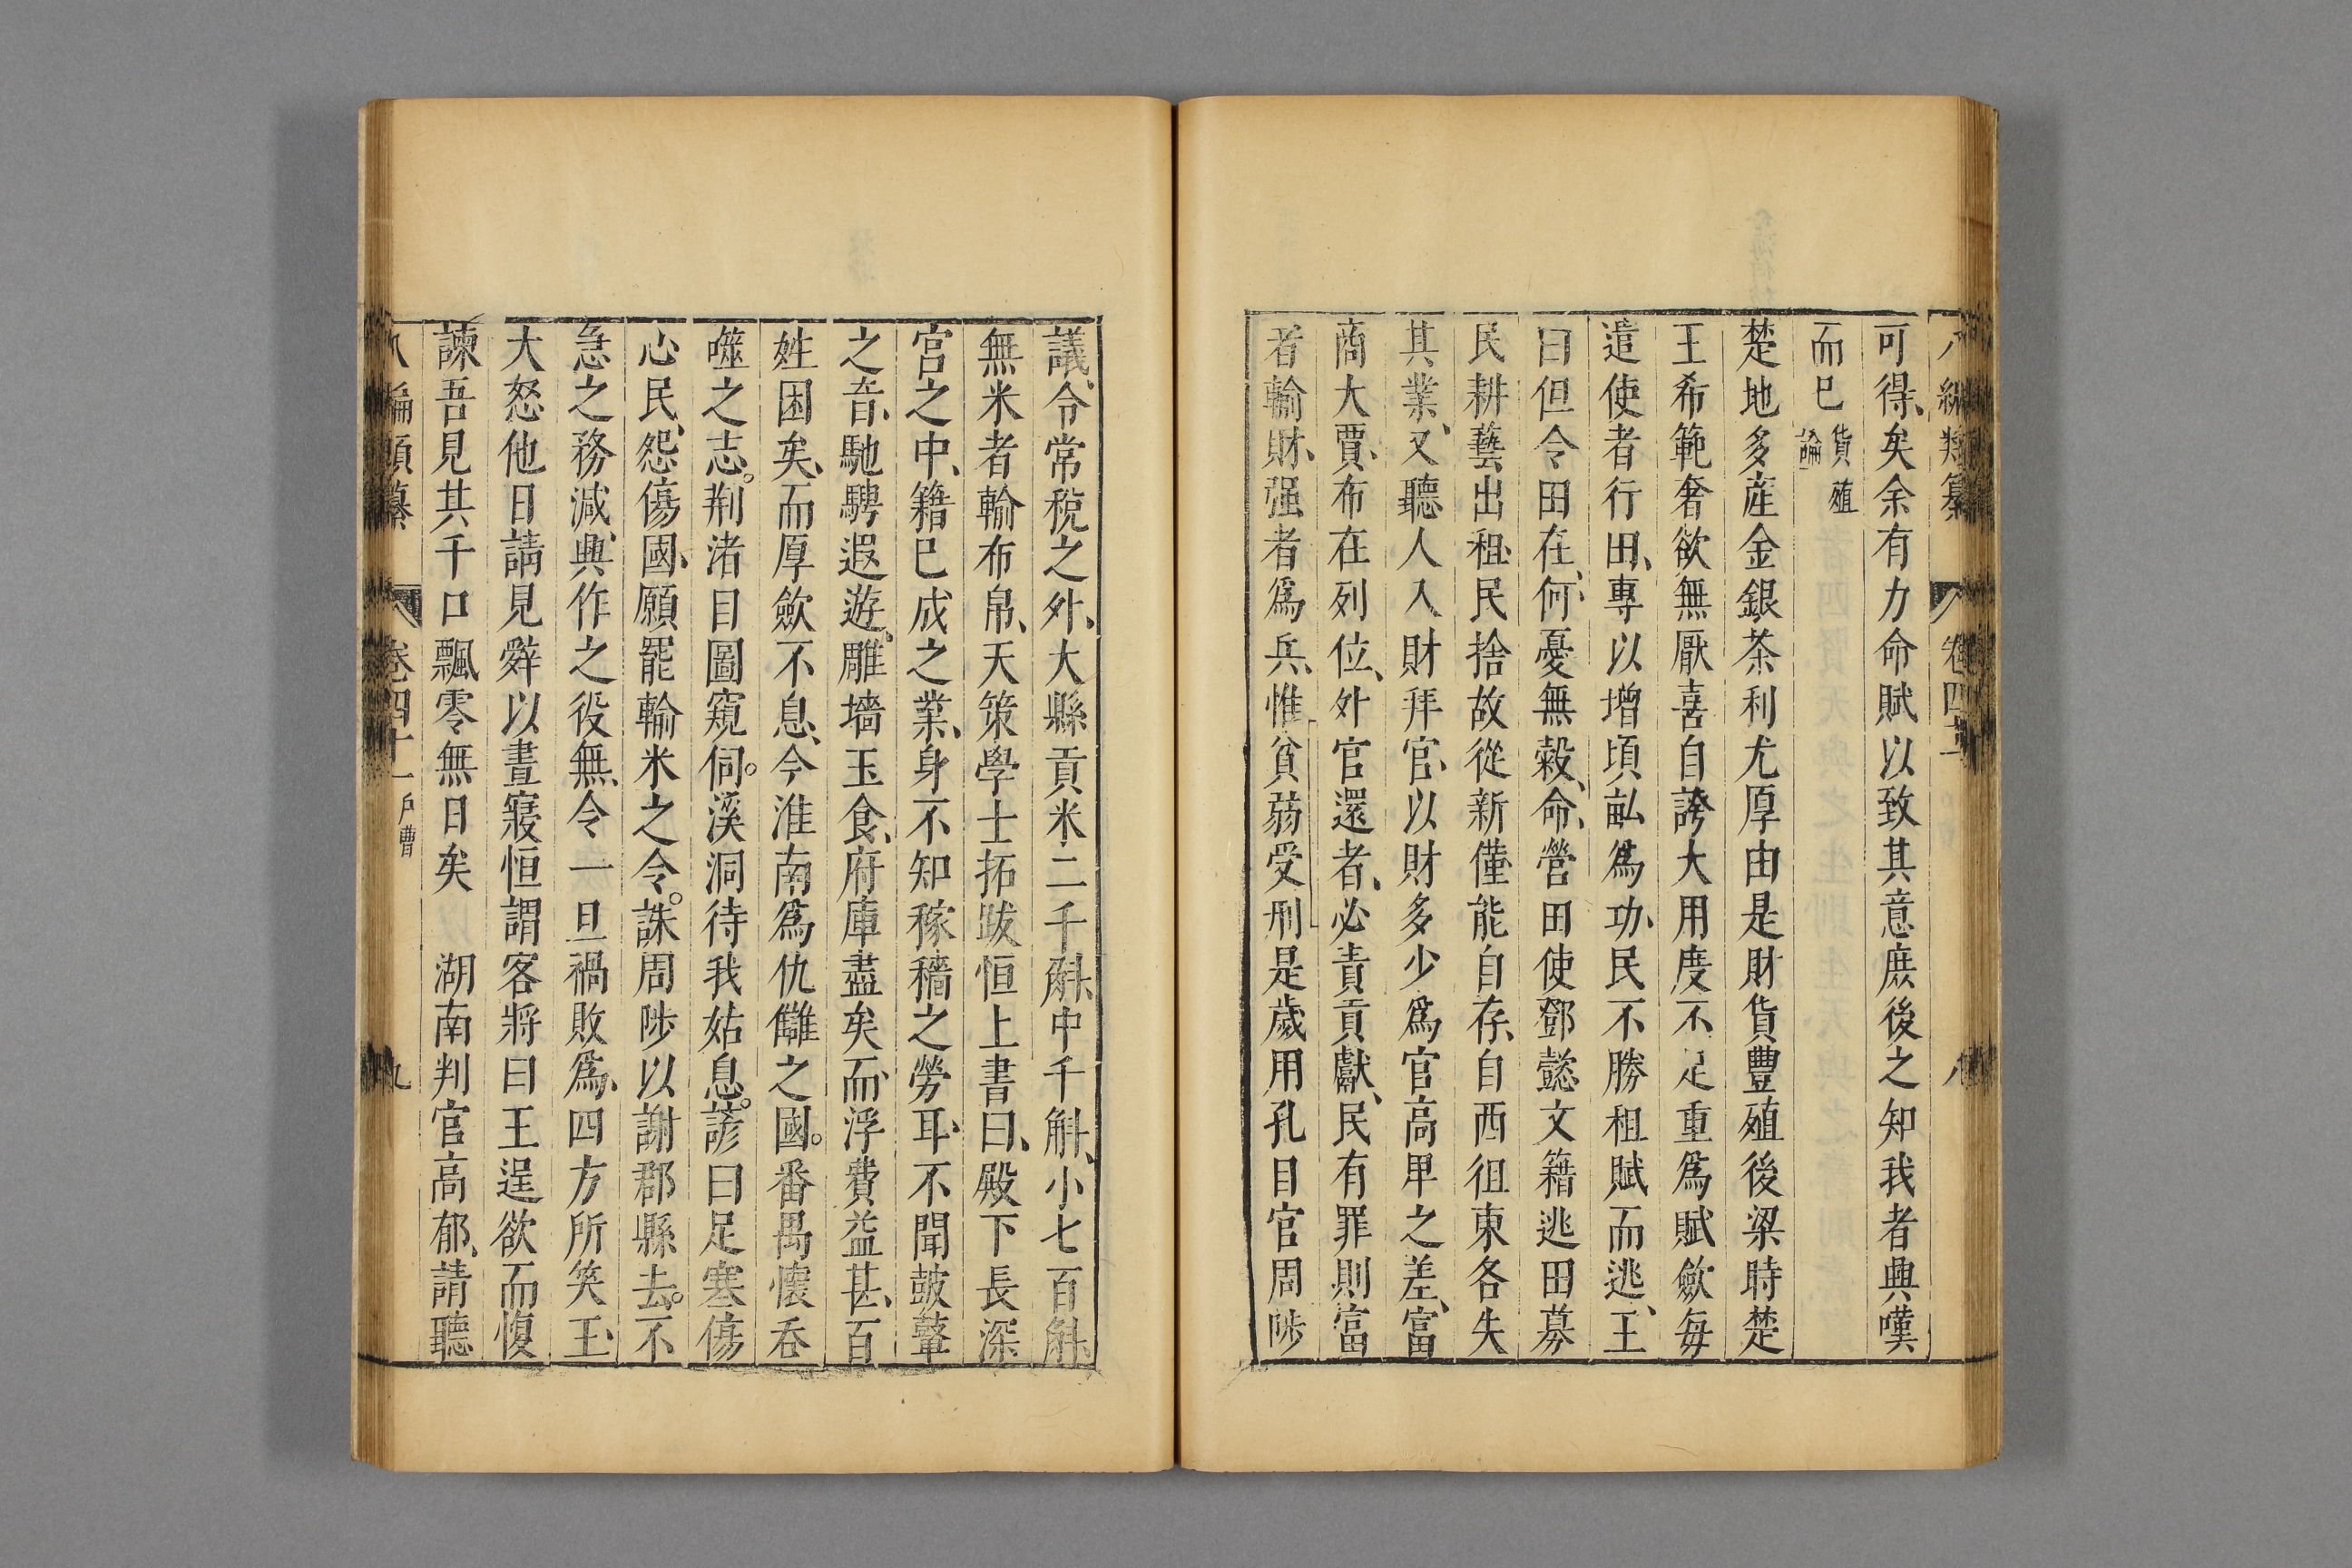 可得矣余有力命賦以致其意庶後之知我者興嘆
而巳貨殖論
楚地多產金銀茶利尤厚由是財貨豐殖後梁時楚
王希範奢欲無厭喜自誇大用度不足重爲賦歛毎
遣使者行田專以增頃畝爲功民不勝租賦而逃王
曰但令田在何憂無穀命營田使鄧懿文籍逃田募
民耕藝出租民捨故從新僅能自存自西徂東各失
其業又聽人入財拜官以財多少爲官高卑之差富
商大賈布在列位外官還者必責貢獻民有罪則富
者輸財强者爲兵惟貧弱受刑是歲用孔目官周陟
議令常稅之外大縣貢米二千斛中千斛小七百斛
無米者輸布帛天策學士拓跋恒上書曰殿下長深
宮之中籍巳成之業身不知稼穡之勞耳不聞鼓鼙
之音馳騁遐遊雕墻玉食府庫盡矣而浮費益甚百
姓困矣而厚歛不息今淮南爲仇讎之國番禺懷吞
噬之志荆渚目圖窺伺溪洞待我姑息諺曰足寒傷
心民怨傷國願罷輸米之令誅周陟以謝郡縣去不
急之務減興作之役無令一旦禍敗爲四方所笑王
大怒他日請見辭以晝寢恒謂客將曰王逞欲而愎
諫吾見其千口飄零無日矣　湖南判官高郁請聽
八編類纂　卷四十一戶曹　九